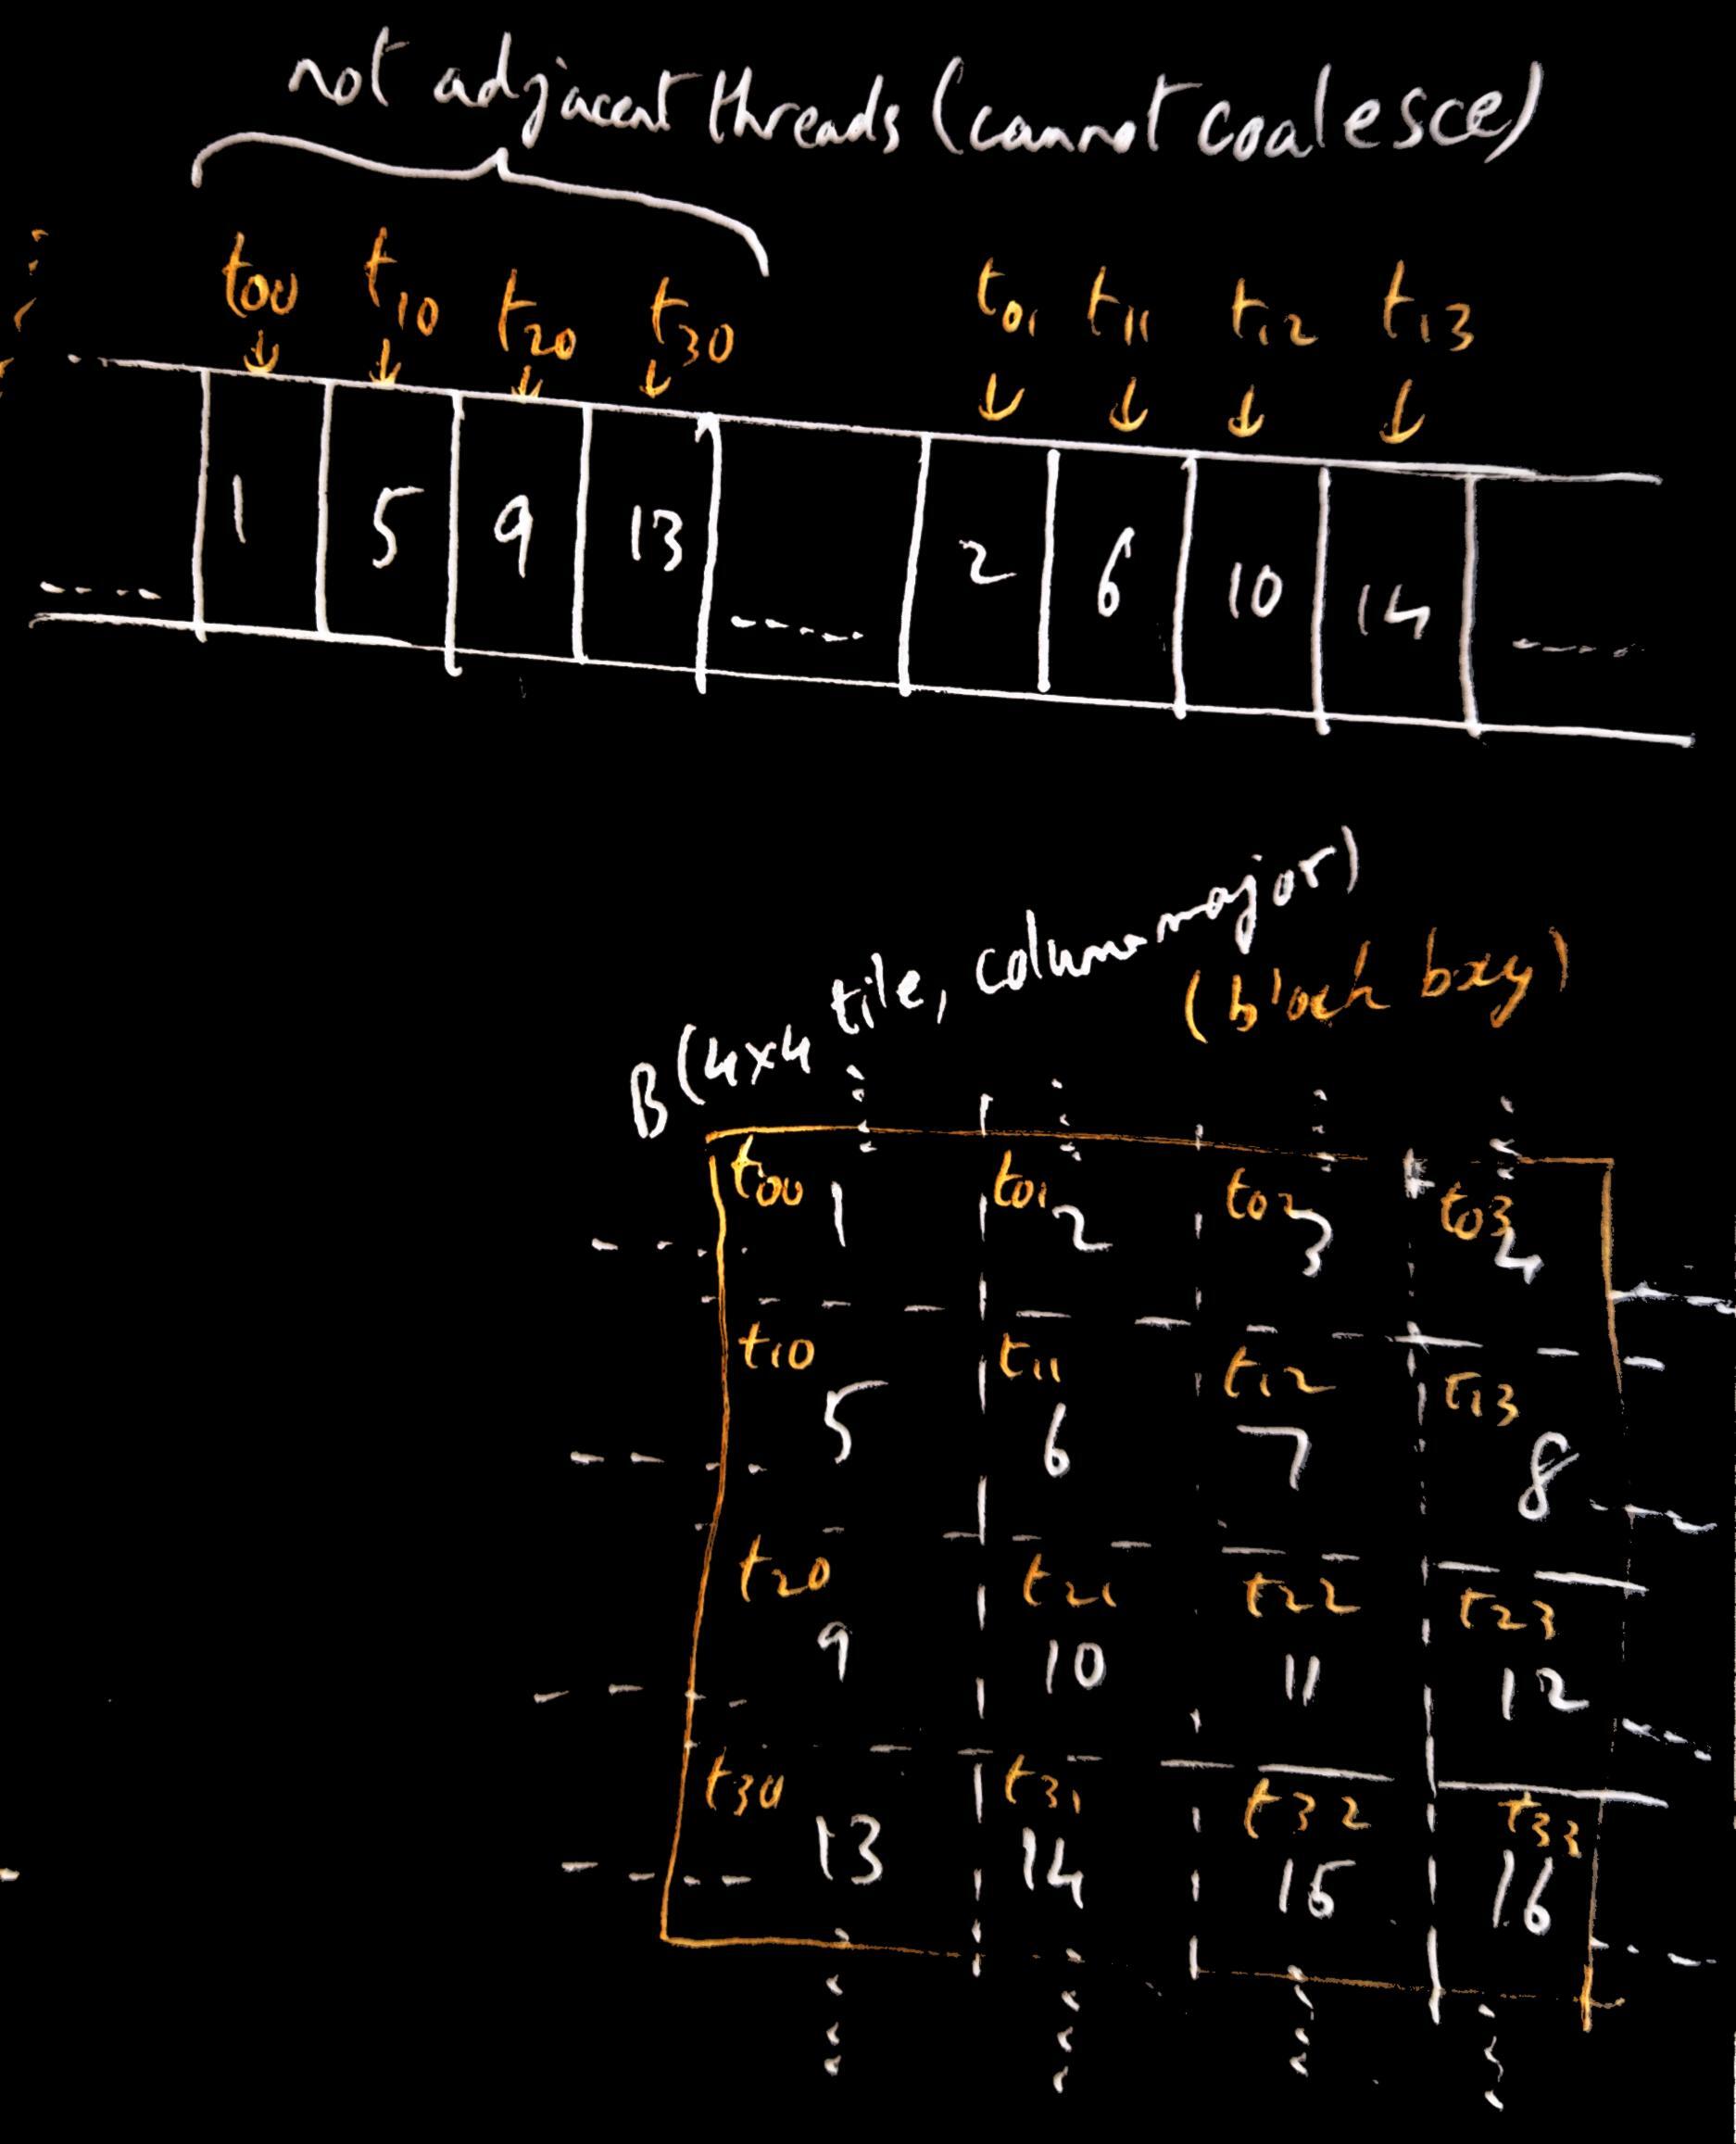 not adjacent threads (cannot coalesce)
t00 t10 t20 t30 t01 t11 t12 t13
1 5 9 13 2 6 10 14
B (4x4 tile, column major)
(block bxy)
t00 t01 t02 t03
1 2 3 4
t10 t11 t12 t13
5 6 7 8
t20 t21 t22 t23
9 10 11 12
t30 t31 t32 t33
13 14 15 16